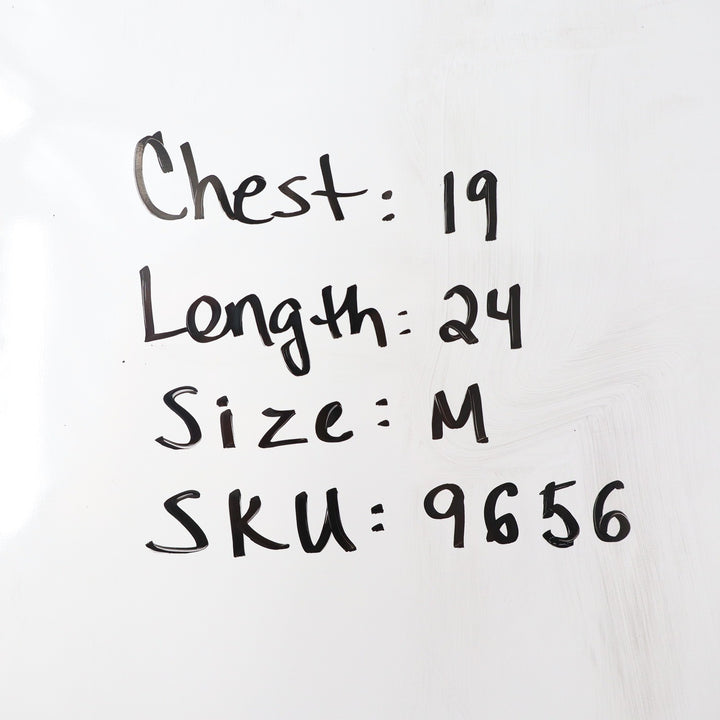 Chest: 19
Length: 24
Size: M
SKU: 9656